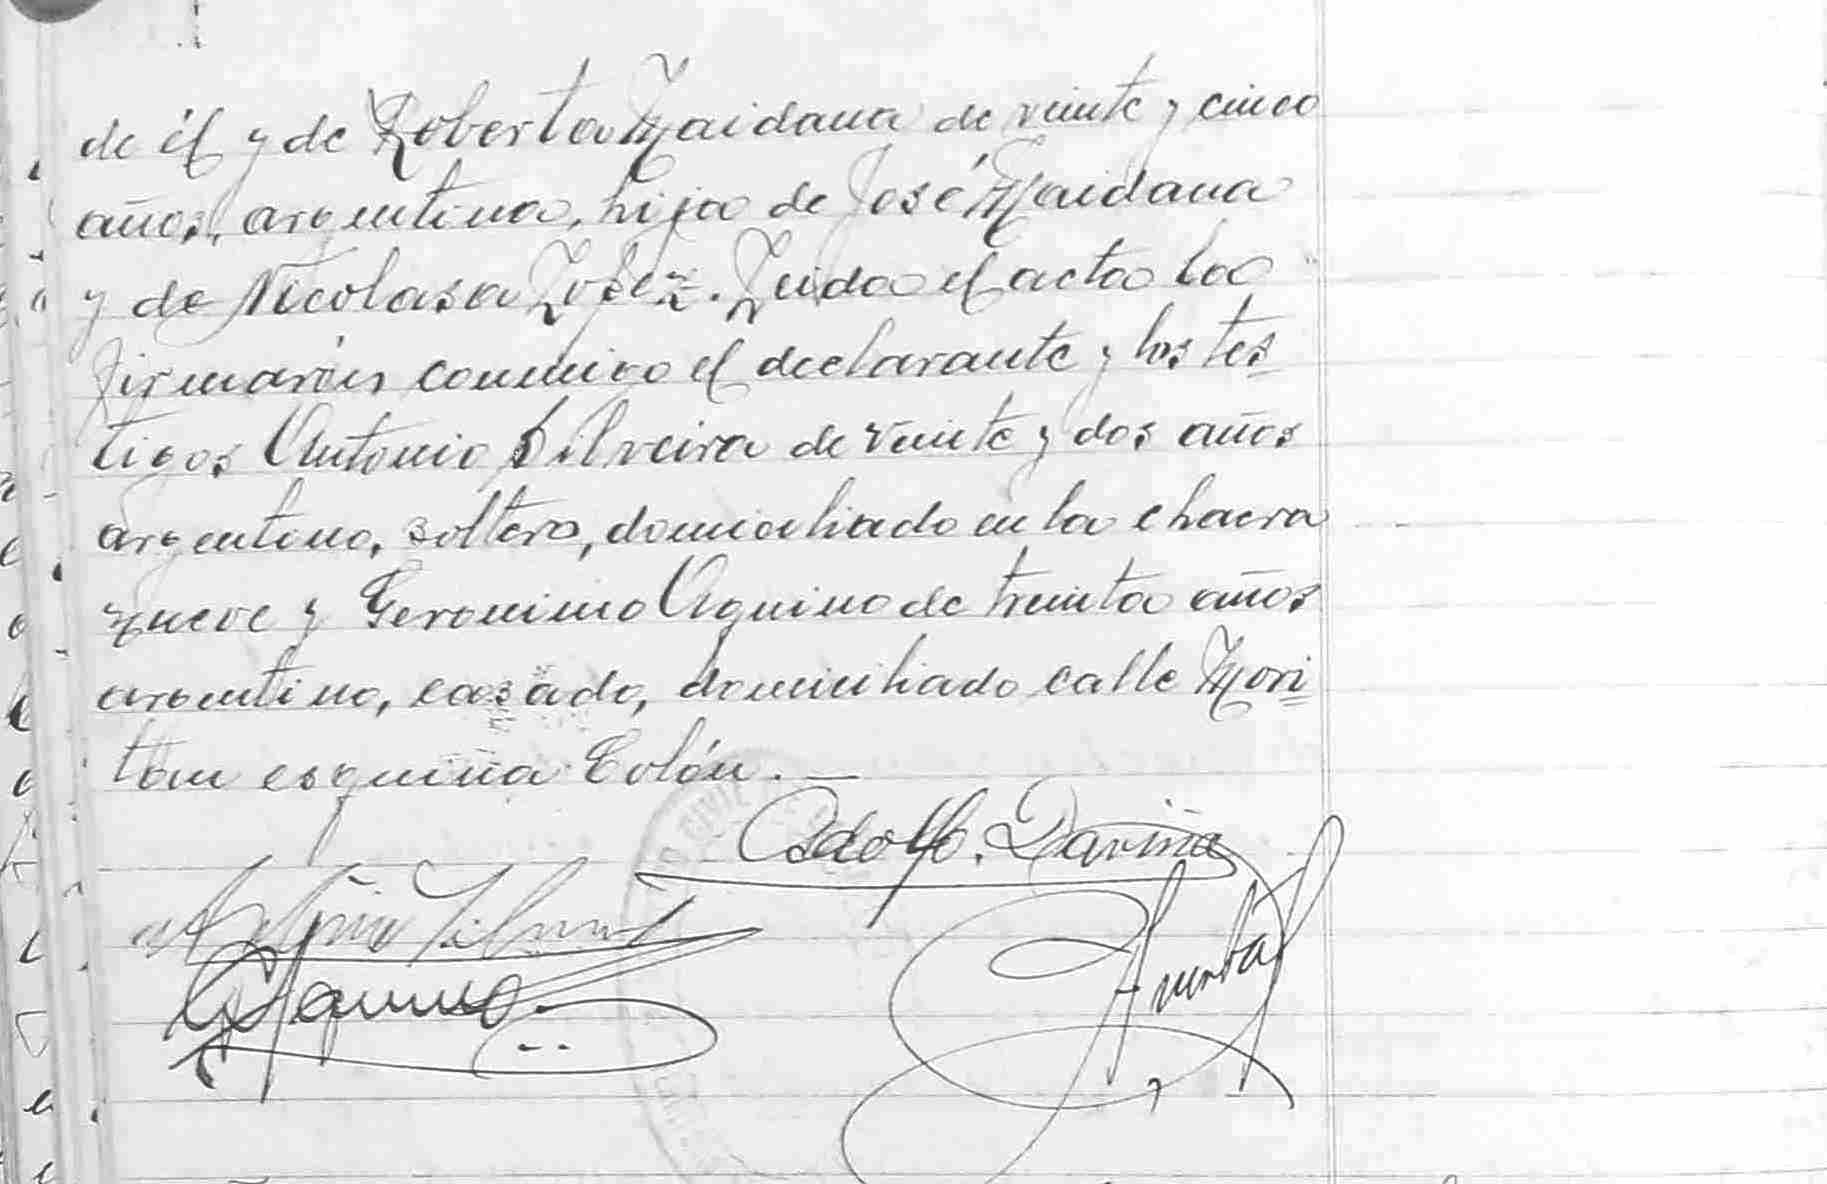 de él y de Roberta Maidana de veinte y cinco
años, argentina, hija de José Maidana
y de Nicolasa Lopez. Leida el acta la
firmarón conmigo el declarante y los tes
tigos Antonio Silveira de veinte y dos años
argentino, soltero, domiciliado en la chacra
nueve y Geronimo Aquino de treinta años
argentino, casado, domiciliado calle Mori
tan esquina Colón.—
Adolfo. Daviña
GAquino